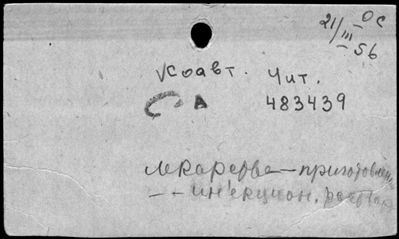 21/III-56 ОС
коавт. Чит.
А 483439
лекарства — приготовлен
— — инъекцион. раствор